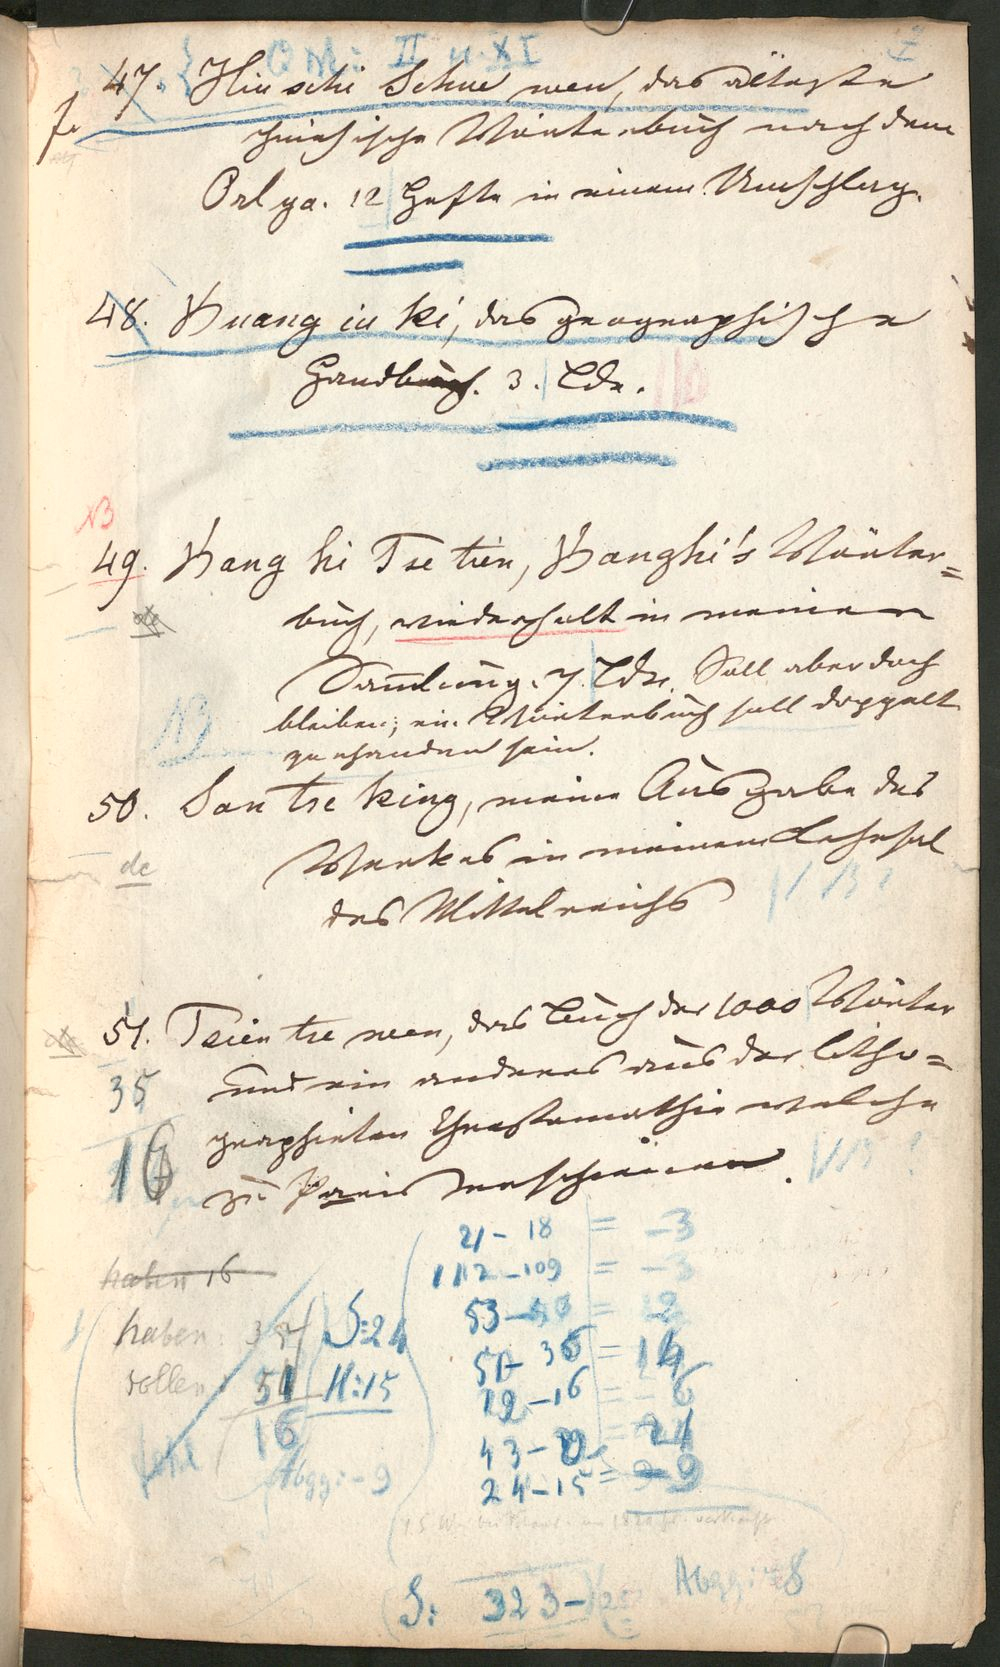 II u. XI
47. Hiu schi Schue wen, das älteste
chinesische Wörterbuch nach dem
12 Hefte in einem Umschlag.
48. Kuang iu ki, das geographische
Handbuch. 3. Bde.
NB
49. Kang hi Tse tien, Kanghi's Wörter=
buch, wiederholt in meiner
Samlung. 7. Bde. Soll aber doch
bleiben; ein Wörterbuch soll doppelt
vorhanden sein.
NB
50. San tse king, meine Ausgabe des
Werkes in meinem Lehrsal
de
des Mittelreichs
NB?
51. Tsien tse wen, das Buch der 1000 Wörter
35
und ein anderes aus der litho=
graphirten Chrestomathie welche
16
zu Paris erschienen.
NB ?
21 - 18 = -3
haben 16
112 - 109 = -3
haben: 35 S: 24
53 - 50 =
51 - 36 =
sollen: 51 11:15
16
43 -
24 - 15 = 9
Abgg: - 9
Abgg: 8
S: 323 -